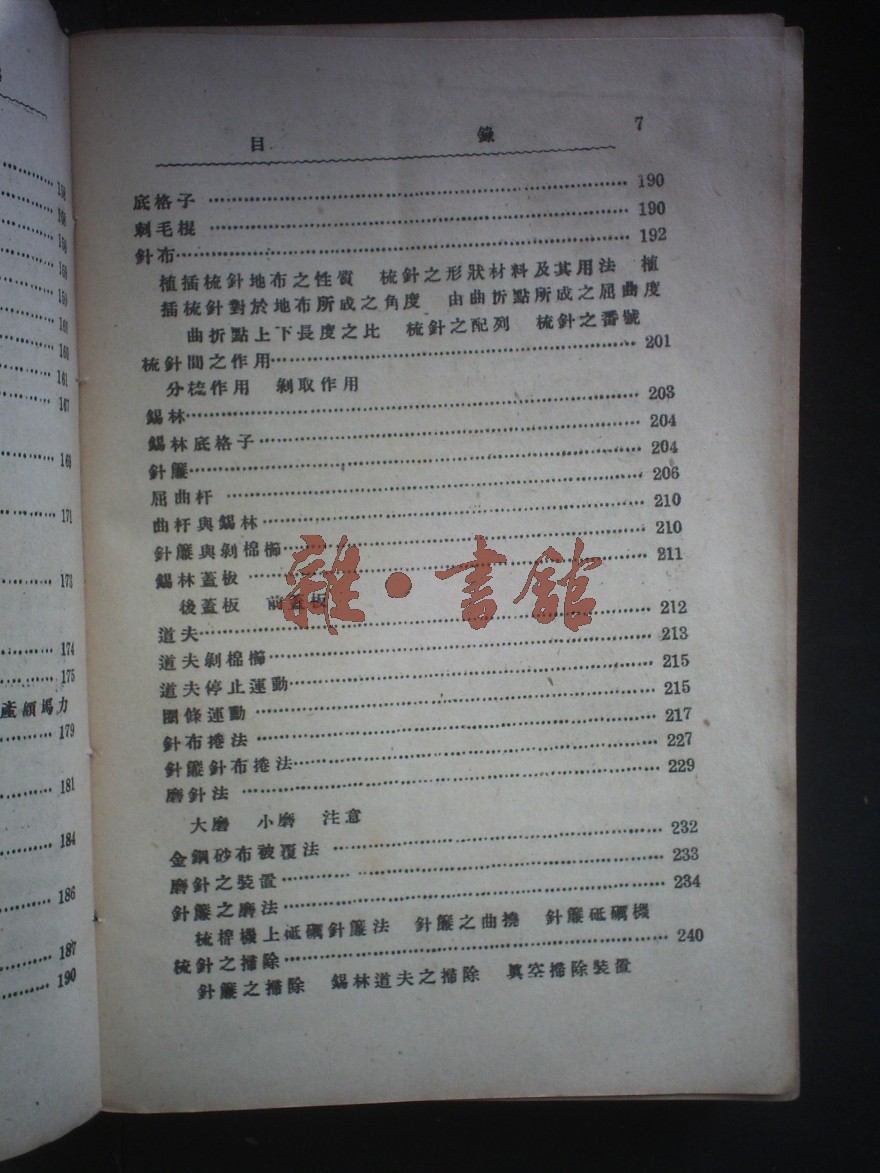 158
158
159
160
159
160
160
161
167
169
171
173
174
175
產額馬力
179
181
184
186
187
190
目 錄 7
底格子 190
刺毛棍 190
針布 192
植插梳針地布之性質 梳針之形狀材料及其用法 植
插梳針對於地布所成之角度 由曲折點所成之屈曲度
曲折點上下長度之比 梳針之配列 梳針之番號
梳針間之作用 201
分梳作用 剝取作用
錫林 203
錫林底格子 204
針簾 204
屈曲杆 206
曲杆與錫林 210
針簾與剝棉櫛 210
錫林蓋板 211
後蓋板 前蓋板
道夫 212
道夫剝棉櫛 213
道夫停止運動 215
圈條運動 215
針布捲法 217
針簾針布捲法 227
磨針法 229
大磨 小磨 注意
金鋼砂布被覆法 232
磨針之裝置 233
針簾之磨法 234
梳棉機上砥礪針簾法 針簾之曲撓 針簾砥礪機
梳針之掃除 240
針簾之掃除 錫林道夫之掃除 眞空掃除裝置
雜·書館